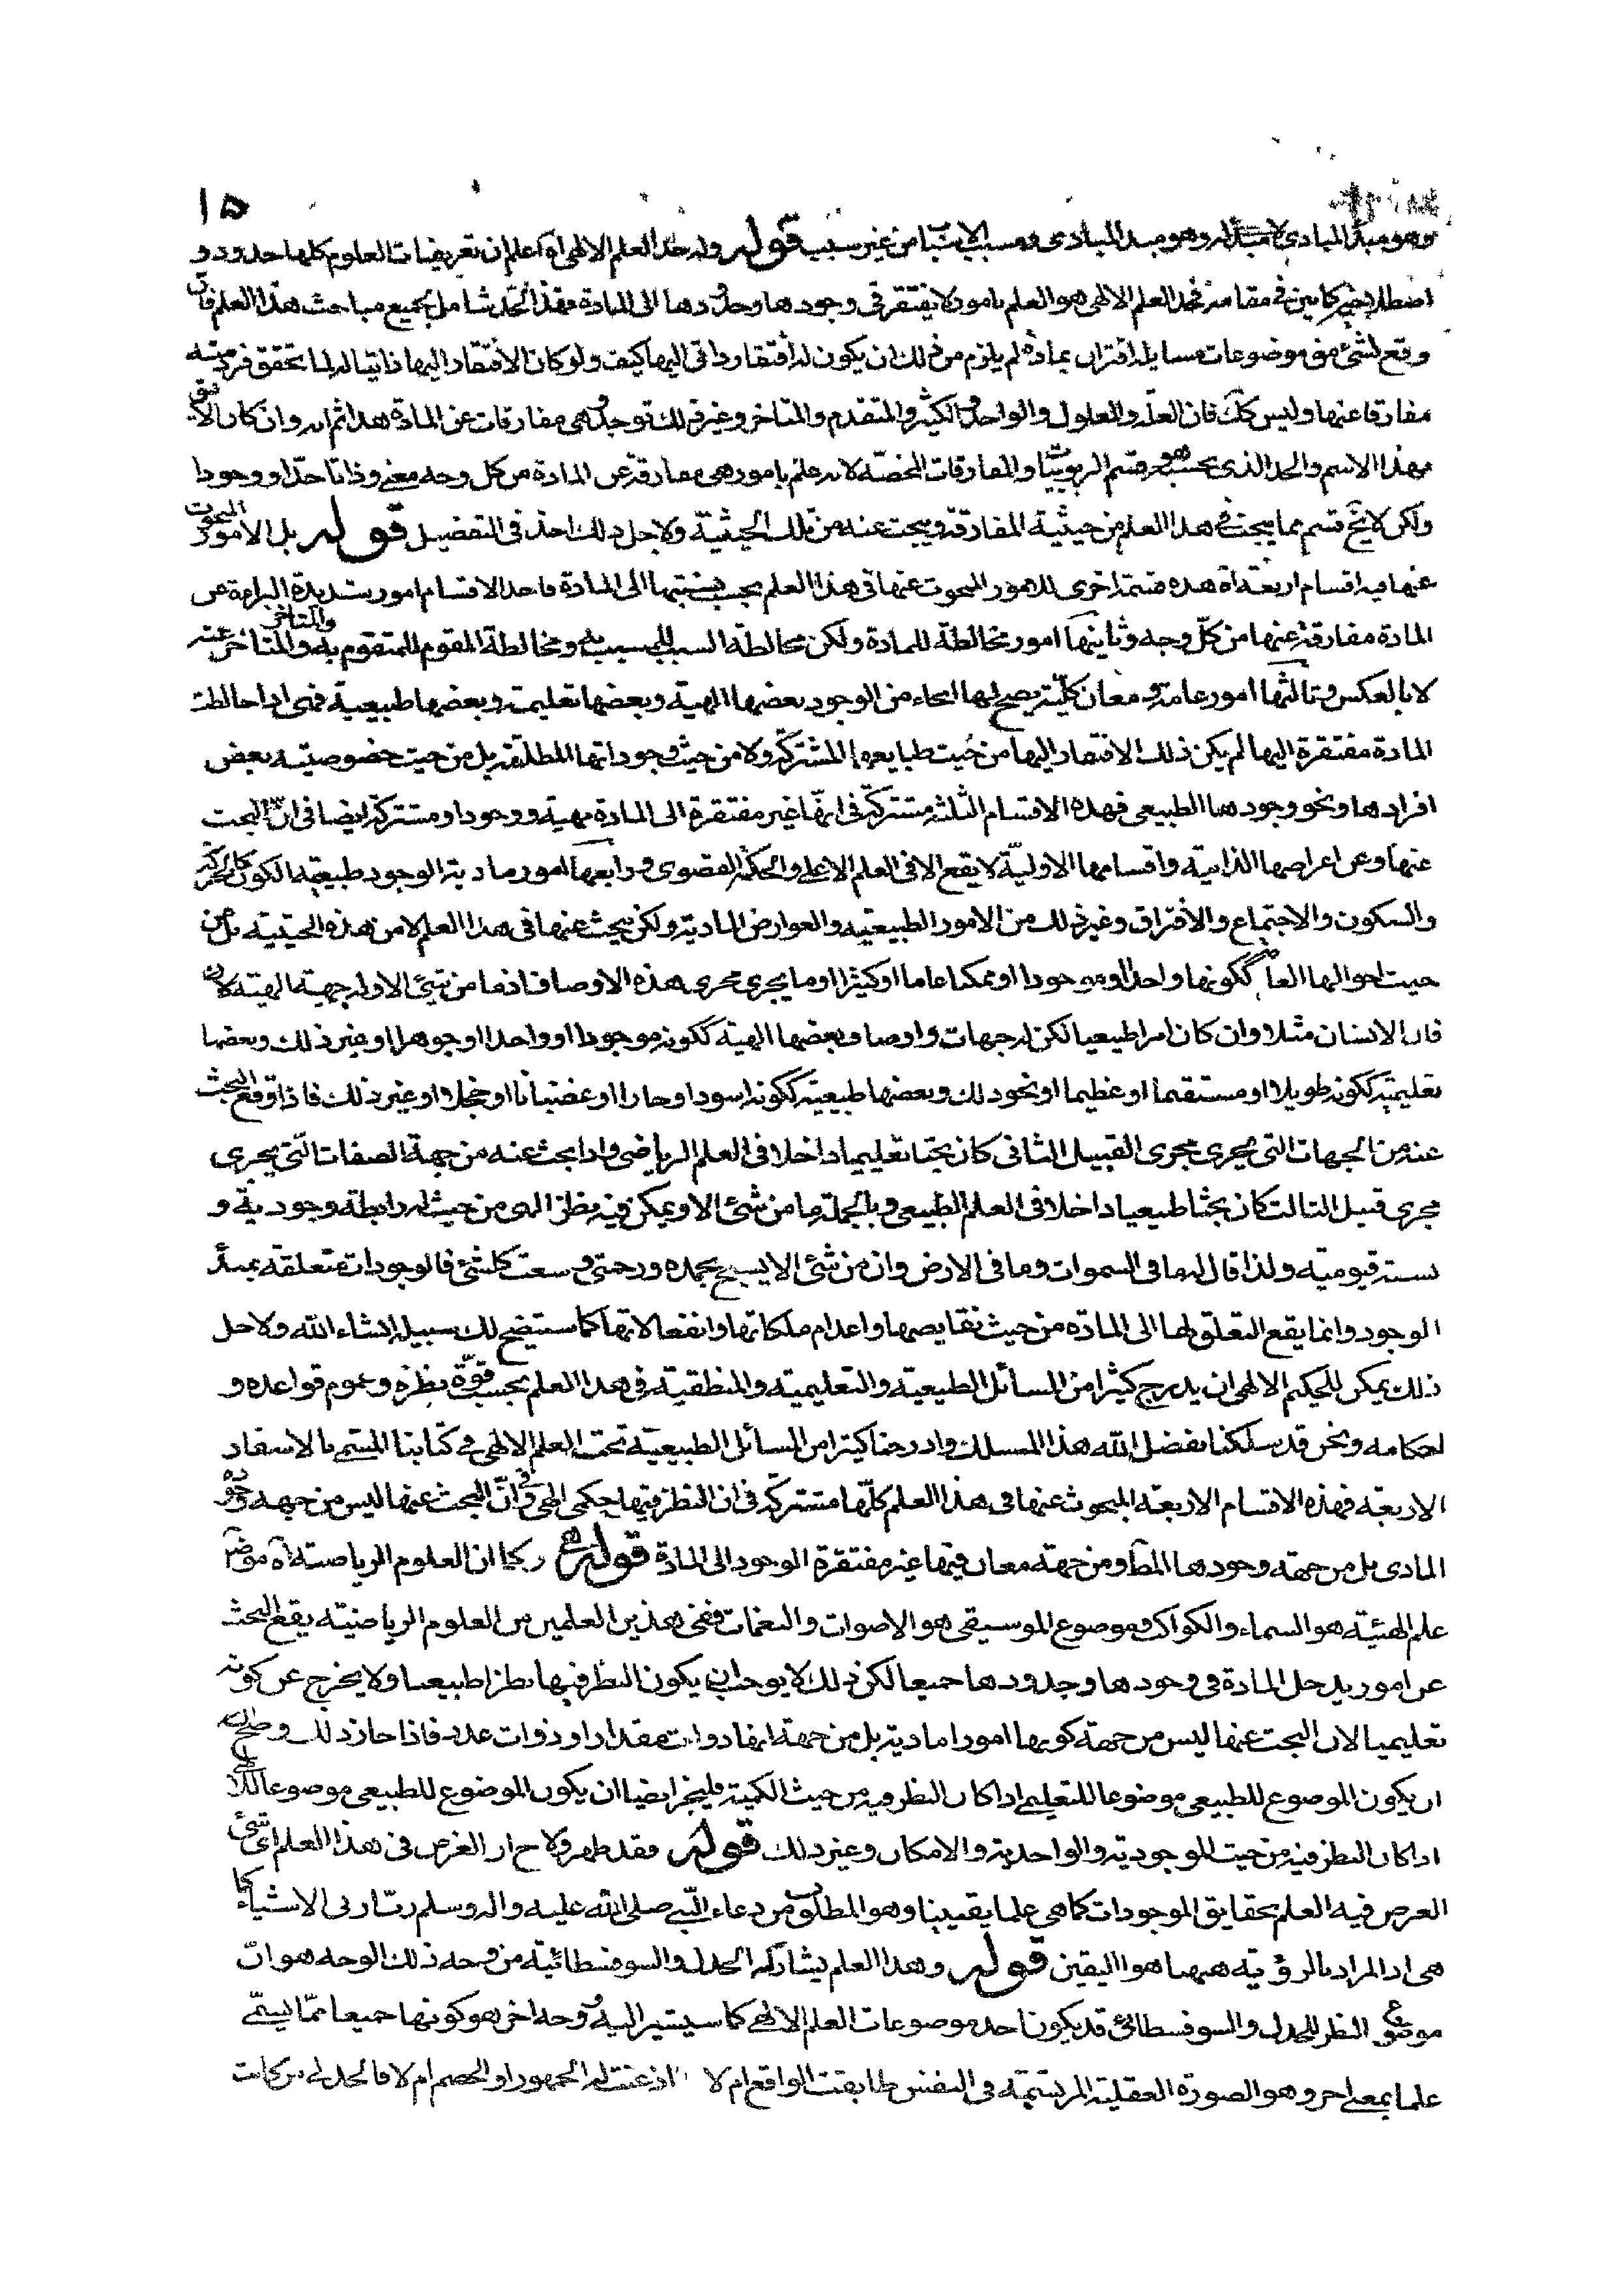 ١٥
وهو مبدأ المبادي لا مبدأ له وهو مبدا المبادى ومسبب الاسباب من غير سبب قوله وله حدّ العلم الالهى آه اعلم ان تعريفات العلوم كلها حدود و
اضطلاحية كما بين في مقامه فحد العلم الالهى هو العلم بامور لا يفتقر في وجودها وحدودها الى المادة فهذا الحد شامل لجميع مباحث هذا العلم فان
وقع لشئ من موضوعات مسايله اقتران بمادة لم يلزم من ذلك ان يكون له افتقار ذاتى اليها كيف ولو كان الافتقار اليها ذاتيا له لما تحقق فرد منه
مفارقا عنها وليس كك فان العلة والمعلول والواحد والكثير والمتقدم والمتاخر وغير ذلك توجد وهى مفارقات عن المادة هذا ثم انه وان كان الاليق
بهذا الاسم والحد الذى بحسبه هو قسم الربوبيات والمفارقات المحضة لانه علم بامور هى مفارقة عن المادة من كل وجه معنى وذاتا حدّا ووجودا
ولكن لا يخ قسم مما يبحث في هذا العلم من حيثية المفارقة ويبحث عنه من تلك الحيثية ولاجل ذلك اخذ فى التفصيل قوله بل الامور المبحوث
عنها فيه اقسام اربعة آه هذه قسمة اخرى للامور المبحوث عنها فى هذا العلم بحسب نسبتها الى المادة فاحد الاقسام امور شديدة البراءة عن
المادة مفارقة عنها من كلّ وجه وثانيها امور مخالطة للمادة ولكن مخالطة السبب للمسبب به ومخالطة المقوم للمتقوم به والمتاخر عنه
لا بالعكس وثالثها امور عامة ومعان كلّية يصح لها انحاء من الوجود بعضها الهية وبعضها تعليمية وبعضها طبيعية فهى اذا خالطت
المادة مفتقرة اليها لم يكن ذلك الافتقار اليها من حيث طبايعها المشتركة ولا من حيث وجوداتها المطلقة بل من حيث خصوصيته بعض
افرادها ونحو وجودها الطبيعى فهذه الاقسام الثلثة مشتركة فى انها غير مفتقرة الى المادة مهية ووجودا ومشتركة ايضا فى انّ البحث
عنها وعن اعراضها الذاتية واقسامها الاولية لا يقع الا فى العلم الاعلى والحكمة القصوى ورابعها امور مادية الوجود طبيعية الكون كالحركة
والسكون والاجتماع والافتراق وغير ذلك من الامور الطبيعيه والعوارض المادية ولكن يبحث عنها فى هذا العلم لا من هذه الحيثية بل من
حيث احوالها العامة ككونها واحدا او موجودا او ممكنا عاما او كثيرا او ما يجرى مجرى هذه الاوصاف اذ ما من شئ الا وله جهة الهية كان
فان الانسان مثلا وان كان امرا طبيعيا لكن له جهات واوصاف بعضها الهية ككونه موجودا او واحدا او جوهرا او غير ذلك وبعضها
تعليمية ككونه طويلا او مستقيما او عظيما او نحو ذلك وبعضها طبيعية ككونه اسود او حارا او غضبانا او خجلا او غير ذلك فاذا وقع البحث
عنه من الجهات التى يجرى مجرى القبيل الثانى كان بحثا تعليميا داخلا فى العلم الرياضى واذا بحث عنه من جهة الصفات الّتى يجرى
مجرى قبيل الثالث كان بحثا طبيعيا داخلا فى العلم الطبيعى وبالجملة ما من شئ الا ويمكن فيه نظر الهى من حيث له رابطة وجودية و
نسبته قيومية ولذا قال له ما فى السموات وما فى الارض وان من شئ الا يسبح بحمده ورحمتى وسعت كلشئ فالوجودات متعلقة بمبدأ
الوجود وانما يقع التعلق لها الى المادة من حيث نقايصها واعدام ملكاتها وانفعالاتها كما ستيضح لك سبيله انشاء الله ولاجل
ذلك يمكن للحكيم الالهى ان يدرج كثيرا من المسائل الطبيعية والتعليمية والمنطقية فى هذا العلم بحسب قوّة نظره وعموم قواعده و
احكامه ونحن قد سلكنا بفضل الله هذا المسلك وادرجنا كثيرا من المسائل الطبيعية تحت العلم الالهى في كتابنا المسمى بالاسفار
الاربعة فهذه الاقسام الاربعة المبحوث عنها فى هذا العلم كلّها مشتركة فى ان النظر فيها حكمى الهى وفى انّ البحث عنها ليس من جهة وجوده
المادى بل من جهة وجودها المط ومن جهة معان فيها غير مفتقرة الوجود الى المادة قوله وكما ان العلوم الرياضية آه موضوع
علم الهيئة هو السماء والكواكب وموضوع الموسيقى هو الاصوات والنغمات ففى هذين العلمين من العلوم الرياضية يقع البحث
عن امور يدخل المادة فى وجودها وحدودها جميعا لكن ذلك لا يوجب ان يكون النظر فيها نظرا طبيعيا ولا يخرج عن كونه
تعليميا لان البحث عنها ليس من جهة كونها امورا مادية بل من جهة انها ذوات مقدار او ذوات عدد فاذا جاز ذلك وصح
ان يكون الموضوع للطبيعى موضوعا للتعليمى اذا كان النظر فيه من حيث الكمية فليجز ايضا ان يكون الموضوع للطبيعى موضوعا للالهى
اذا كان النظر فيه من حيث الموجودية والواحدية والامكان وغير ذلك قوله فقد ظهر ولاح ان الغرض فى هذا العلم اى شئ
الغرض فيه العلم بحقايق الموجودات كما هى علما يقينيا وهو المطلوب من دعاء النّبى صلى الله عليه واله وسلم ربّ ارنى الاشياء كما
هى اذ المراد بالرؤية ههنا هو اليقين قوله وهذا العلم يشارك الجدل والسوفسطائية من وجه ذلك الوجه هو انّ
موضوع النظر للجدل والسوفسطائى قد يكون احد موضوعات العلم الالهى كما سيشير اليه ووجه اخر هو كونها جميعا ممّا يسمّى
علما بمعنى اخر وهو الصورة العقلية المرتسمة فى النفس طابقت الواقع ام لا اذعنت له الجمهور او الخصم ام لا فالجدلى